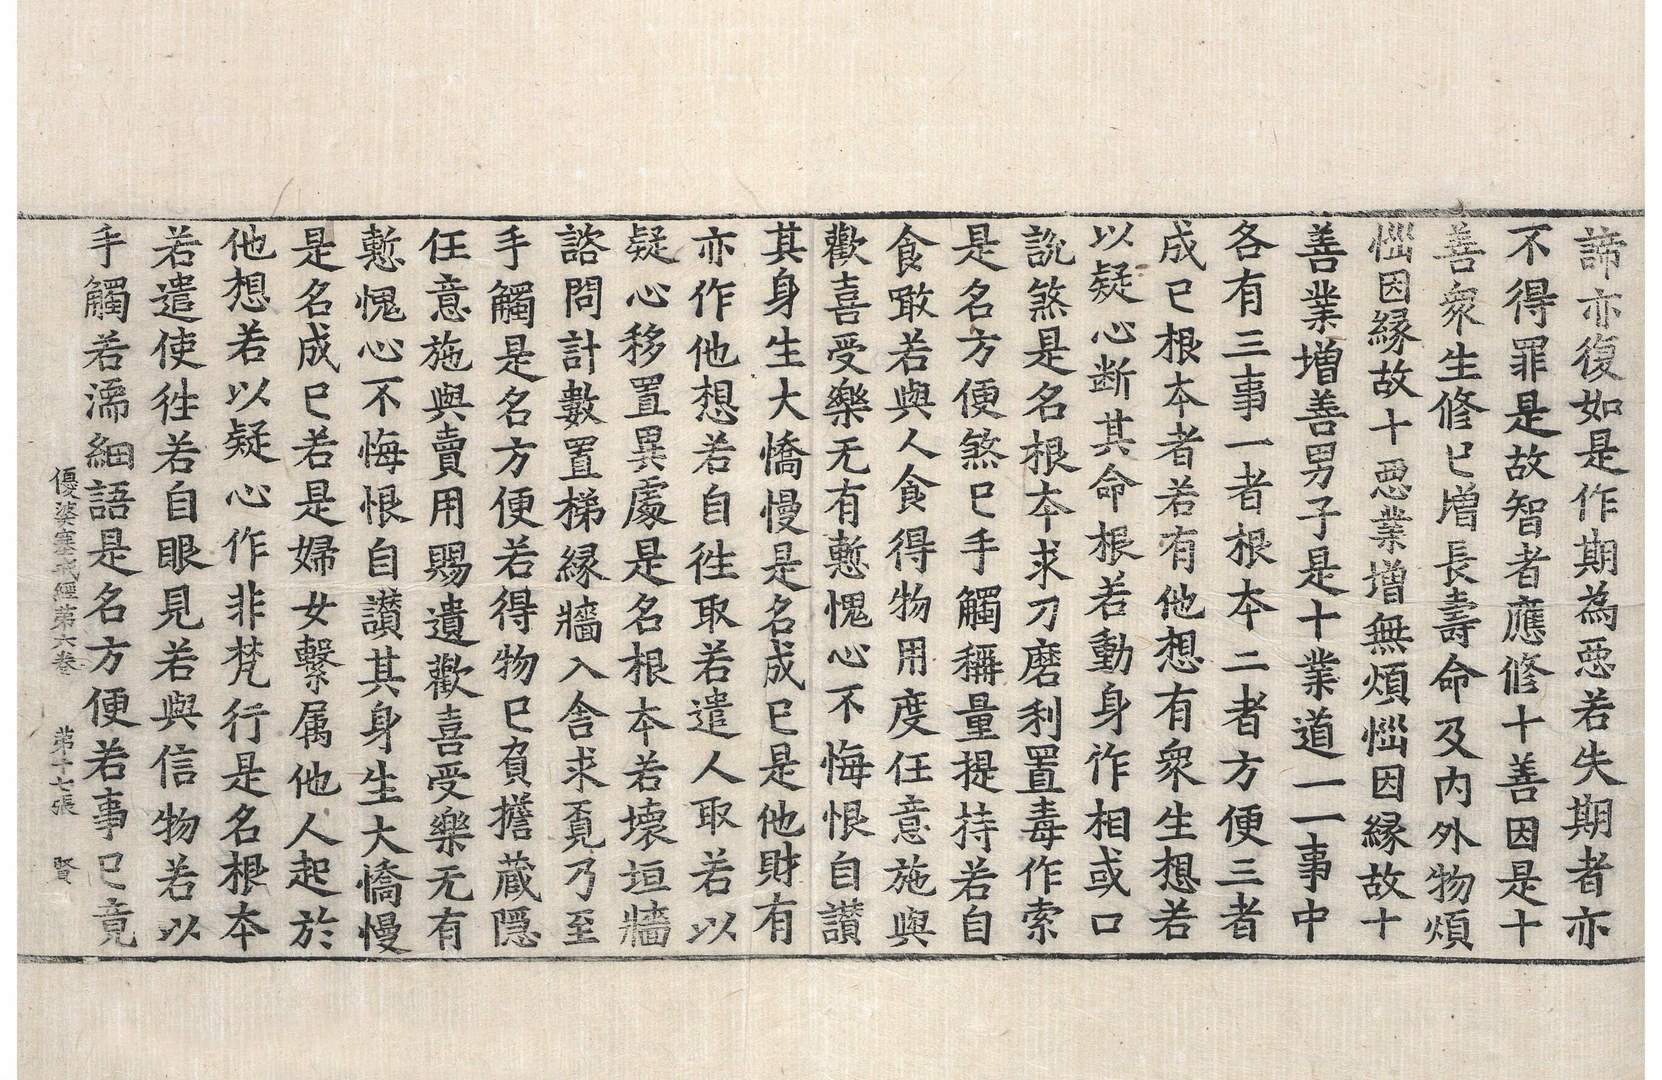 諦亦復如是作期為惡若失期者亦
不得罪是故智者應修十善因是十
善衆生修已增長壽命及內外物煩
惱因縁故十惡業增無煩惱因縁故十
善業增善男子是十業道一一事中
各有三事一者根本二者方便三者
成已根本者若有他想有衆生想若
以疑心断其命根若動身作相或口
說煞是名根本求刀磨利置毒作索
是名方便煞已手觸稱量提持若自
食噉若與人食得物用度任意施與
歡喜受樂无有慙愧心不悔恨自讃
其身生大憍慢是名成已是他財有
亦作他想若自往取若遣人取若以
疑心移置異處是名根本若壞垣牆
諮問計數置梯縁牆入舍求覔乃至
手觸是名方便若得物已負擔藏隱
任意施與賣用賜遺歡喜受樂无有
慙愧心不悔恨自讃其身生大憍慢
是名成已若是婦女繫属他人起於
他想若以疑心作非梵行是名根本
若遣使往若自眼見若與信物若以
手觸若濡細語是名方便若事已竟
優婆塞戒經第六卷 第十七張 賢